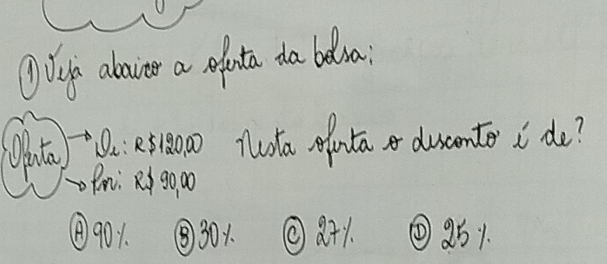 ① Veja abaixo a oferta da bolsa:
Oferta → De: R$120,00 Nesta oferta o desconto é de?
→ Por: R$ 90,00
Ⓐ 90% Ⓑ 30% Ⓒ 27% Ⓓ 25%